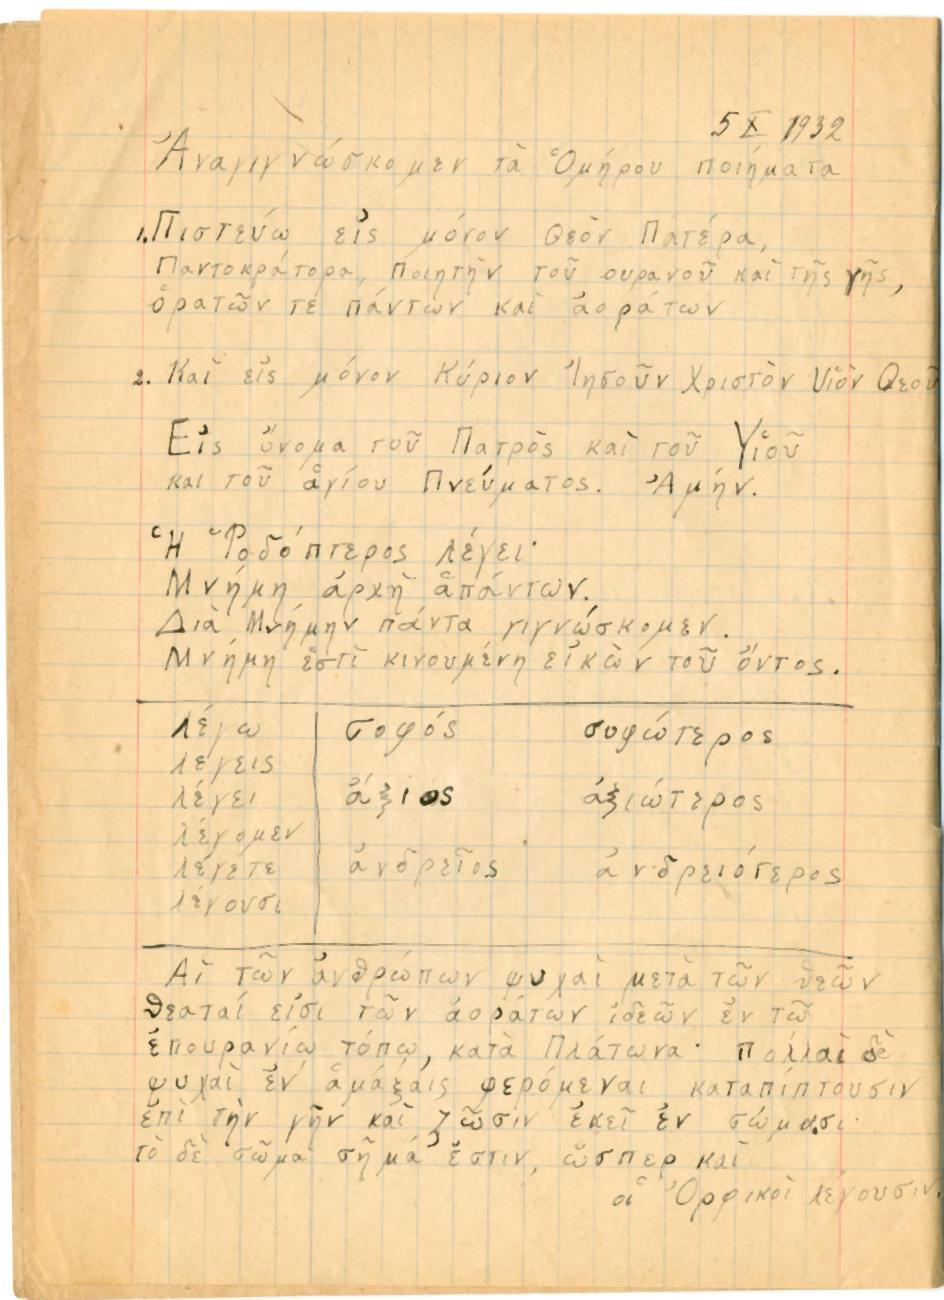 5 X 1932
Ἀναγιγνώσκομεν τὰ Ὁμήρου ποιήματα
1. Πιστεύω εἰς μόνον Θεὸν Πατέρα,
Παντοκράτορα, ποιητὴν τοῦ ουρανοῦ καὶ τῆς γῆς,
ὁρατῶν τε πάντων καὶ ἀοράτων
2. Καὶ εἰς μόνον Κύριον Ἰησοῦν Χριστὸν Υἱὸν Θεοῦ
Εἰς ὄνομα τοῦ Πατρὸς καὶ τοῦ Υἱοῦ
και τοῦ ἁγίου Πνεύματος. Ἀμήν.
Ἡ Ῥοδόπτερος λέγει·
Μνήμη ἀρχὴ ἁπάντων.
Διὰ Μνήμην πάντα γιγνώσκομεν.
Μνήμη ἐστὶ κινουμένη εἰκὼν τοῦ ὄντος.
λέγω σοφός σοφώτερος
λέγεις
λέγει ἄξιος ἀξιώτερος
λέγομεν
λέγετε ἀνδρεῖος ἀνδρειότερος
λέγουσι
Αἱ τῶν ἀνθρώπων ψυχαὶ μετὰ τῶν θεῶν
θεαταί εἰσι τῶν ἀοράτων ἰδεῶν ἐν τῶ
ἐπουρανίω τόπω, κατὰ Πλάτωνα· πολλαὶ δὲ
ψυχαὶ ἐν ἁμάξαις φερόμεναι καταπίπτουσιν
ἐπὶ τὴν γῆν καὶ ζῶσιν ἐκεῖ ἐν σώμασι·
τὸ δὲ σῶμα σῆμά ἐστιν, ὥσπερ καὶ
οἱ Ὀρφικοὶ λέγουσιν.